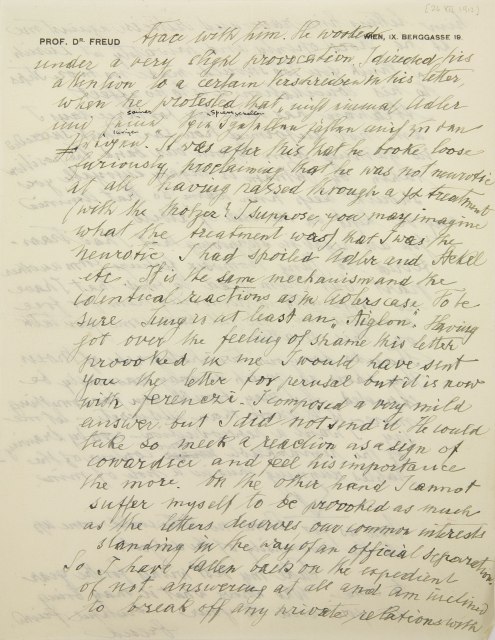 [26 XII 1912]
PROF. DR FREUD
WIEN, IX. BERGGASSE 19.
trace with him. He worked
under a very slight provocation, I directed his
attention to a certain Verschreiben in his letter
when he protested that, nicht einmal Adler
und seine
seiner Spiessgesellen
It was after this that he broke loose
furiously proclaiming that he was not neurotic
at all having passed through a treatment
(with the Moltzer? I suppose, you may imagine
what the treatment was) that I was the
neurotic I had spoiled Adler and Stekel
etc. It is the same mechanism and the
identical reactions as in Adlers case. To be
sure Jung is at least an „Aiglon". Having
got over the feeling of shame his letter
provoked in me I would have sent
you the letter for perusal but it is now
with Ferenczi. I composed a very mild
answer but I did not send it. He would
take so meek a reaction as a sign of
cowardice and feel his importance
the more. On the other hand I cannot
suffer myself to be provoked as much
as the letters deserves our common interests
standing in the way of an official separation.
So I have fallen back on the expedient
of not answering at all and am inclined
to break off any private relations with